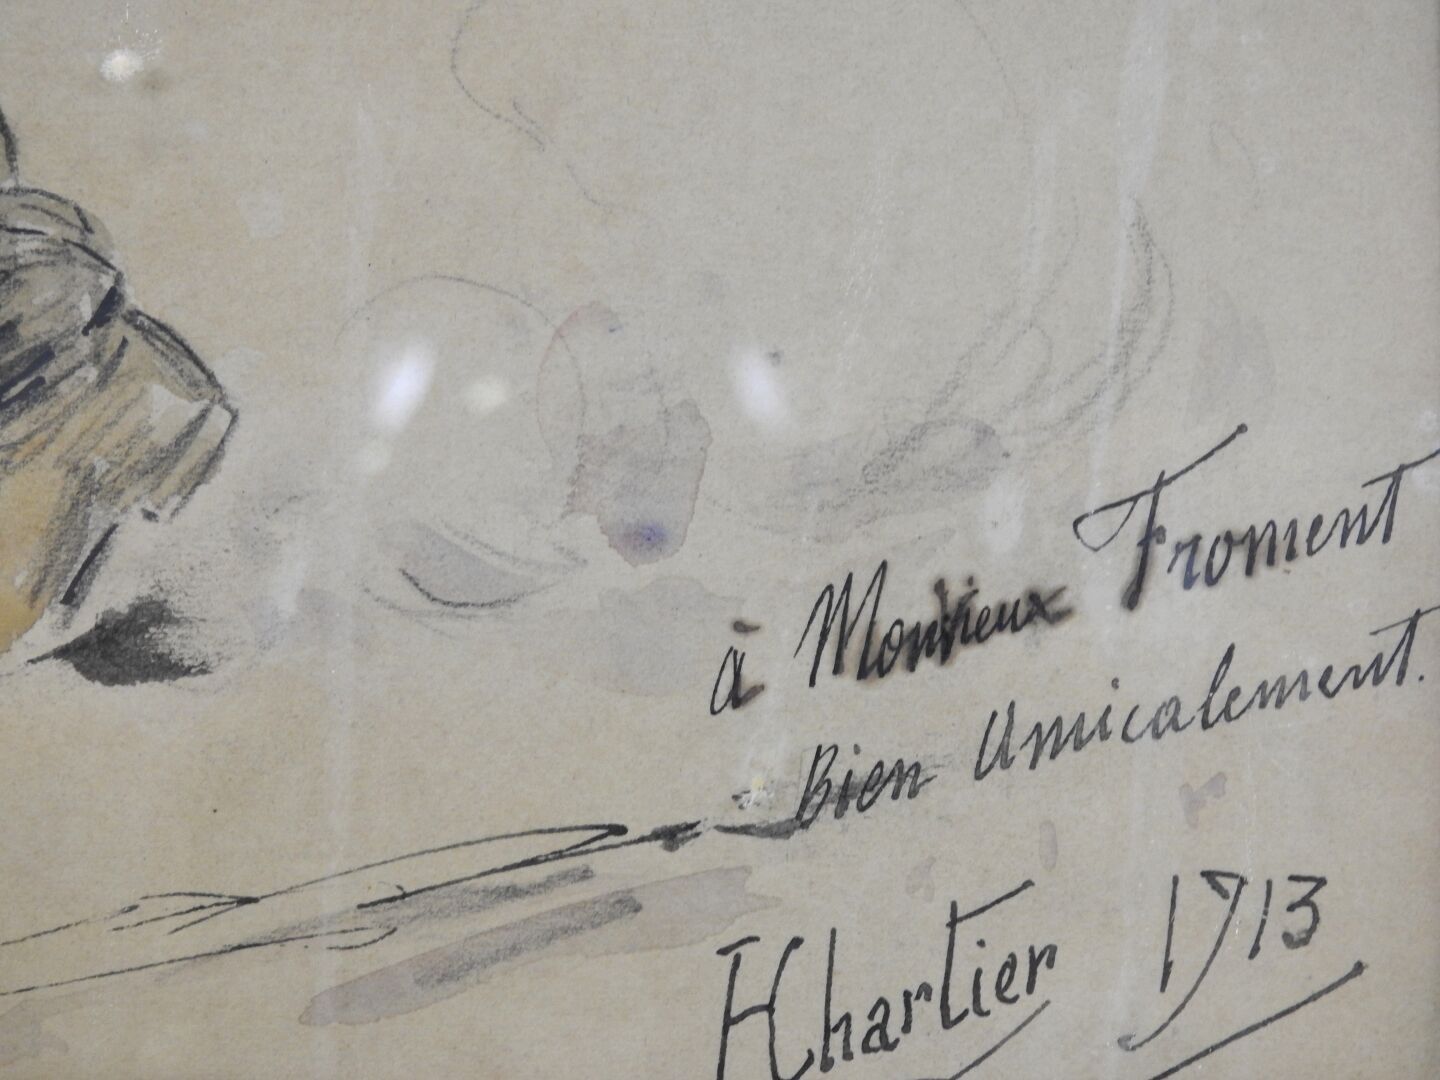 à Monsieur Froment
Bien Amicalement.
HChartier 1913